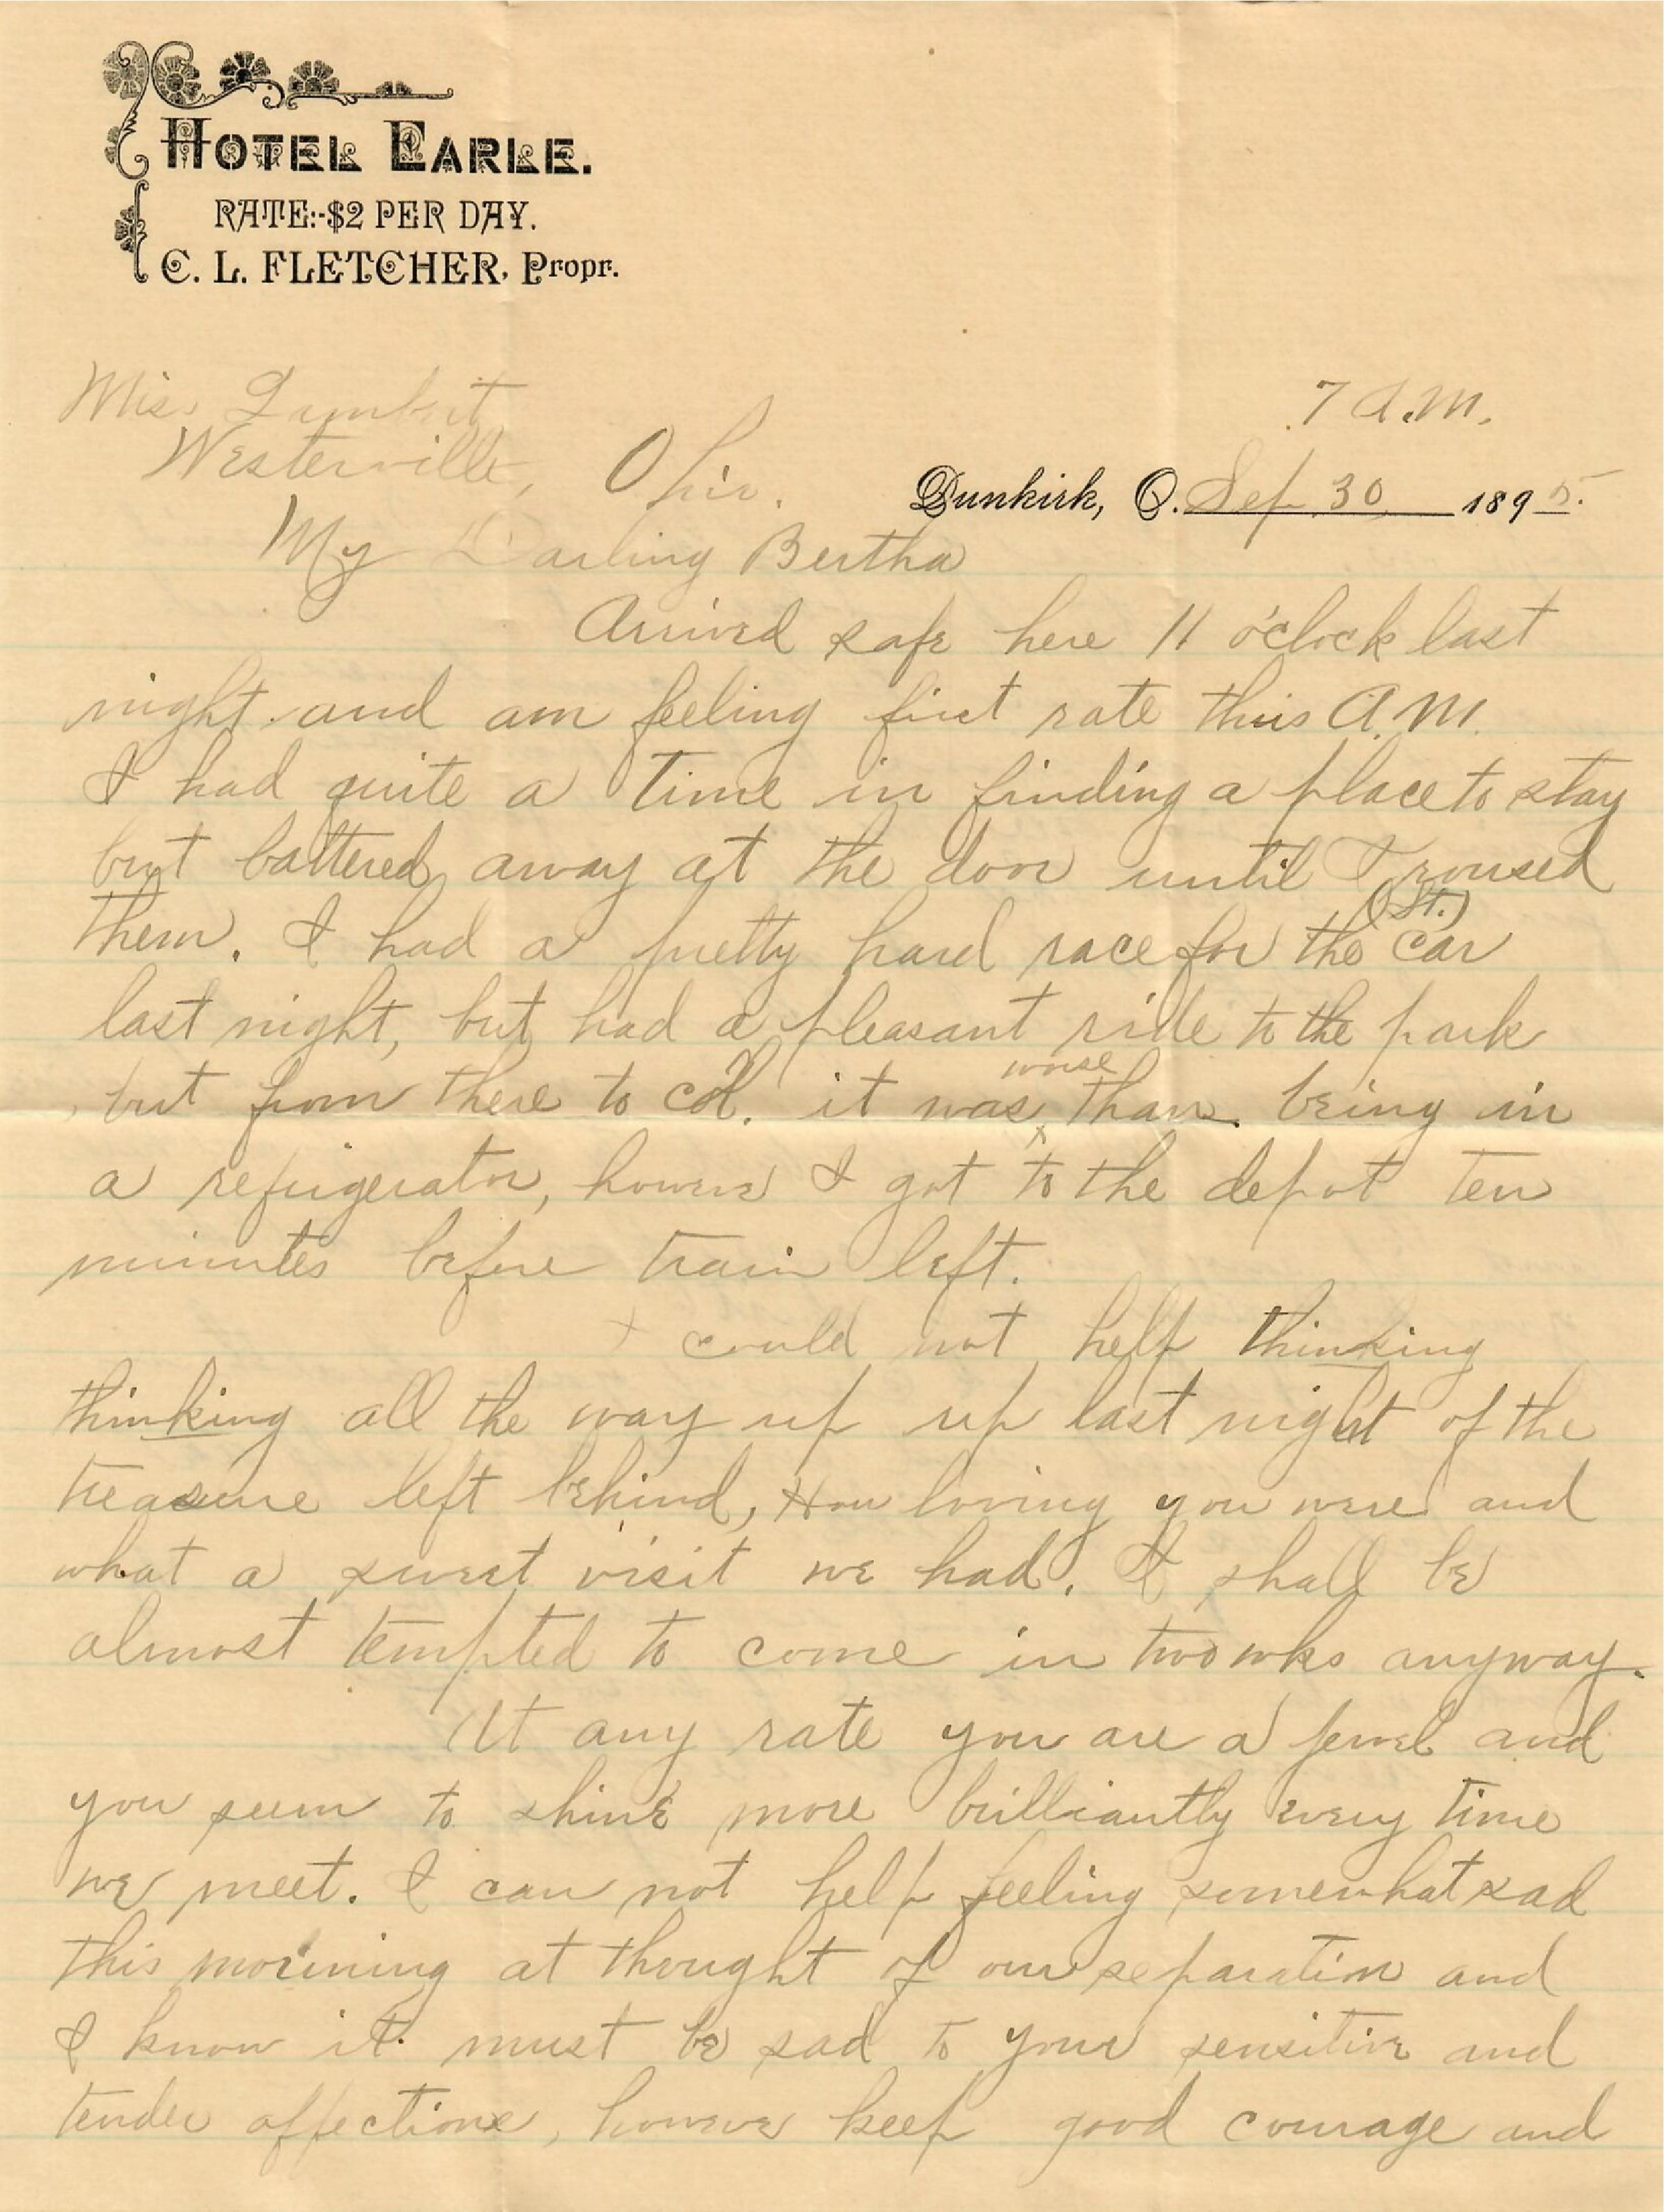 HOTEL EARLE.
RATE:-$2 PER DAY.
C. L. FLETCHER, Propr.
7 A.M.
Miss Lambert
Westerville, Ohio.
Dunkirk, O. Sep. 30 1895.
My Darling Bertha
Arrived safe here 11 o'clock last
night and am feeling first rate this A.M.
I had quite a time in finding a place to stay
but battered away at the door until I roused
them. I had a pretty hard race for the (St.) car
last night, but had a pleasant ride to the park
but from there to Col. it was worse than being in
a refrigerator, however I got to the depot ten
minutes before train left.
I could not help thinking
thinking all the way up up last night of the
treasure left behind, How loving you were and
what a sweet visit we had. I shall be
almost tempted to come in two wks anyway.
At any rate you are a jewel and
you seem to shine more brilliantly every time
we meet. I can not help feeling somewhat sad
this morning at thought of our separation and
I know it must be sad to your sensitive and
tender affections, however keep good courage and